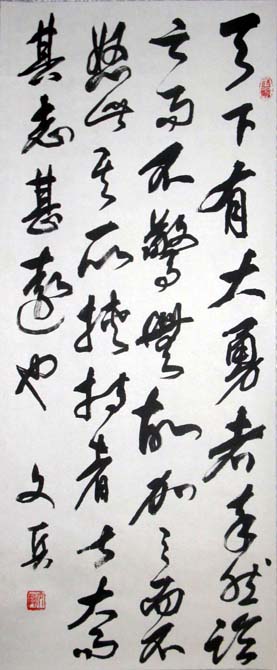 天下有大勇者卒然臨
之而不驚無故加之而不
怒此其所挾持者甚大而
其志甚遠也
文